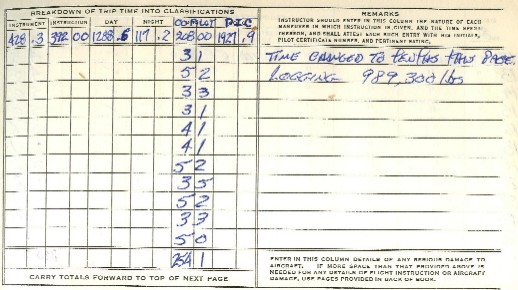 BREAKDOWN OF TRIP TIME INTO CLASSIFICATIONS
REMARKS
INSTRUMENT INSTRUCTION DAY NIGHT COPILOT P.I.C.
INSTRUCTOR SHOULD ENTER IN THIS COLUMN THE NATURE OF EACH
MANEUVER IN WHICH INSTRUCTION IS GIVEN, AND THE TIME SPENT
THEREON, AND SHALL ATTEST EACH SUCH ENTRY WITH HIS INITIALS,
PILOT CERTIFICATE NUMBER, AND PERTINENT RATING.
428 .3 392 00 1288 .6 117 .2 208 00 1927 .9
TIME CHANGED TO TENTHS THIS PAGE.
LOGGING 989,300 lbs
3 1
5 2
3 3
3 1
4 1
4 1
5 2
3 5
5 2
3 3
5 0
254 1
CARRY TOTALS FORWARD TO TOP OF NEXT PAGE
ENTER IN THIS COLUMN DETAILS OF ANY SERIOUS DAMAGE TO
AIRCRAFT. IF MORE SPACE THAN THAT PROVIDED ABOVE IS
NEEDED FOR ANY DETAILS OF FLIGHT INSTRUCTION OR AIRCRAFT
DAMAGE, USE PAGES PROVIDED IN BACK OF BOOK.